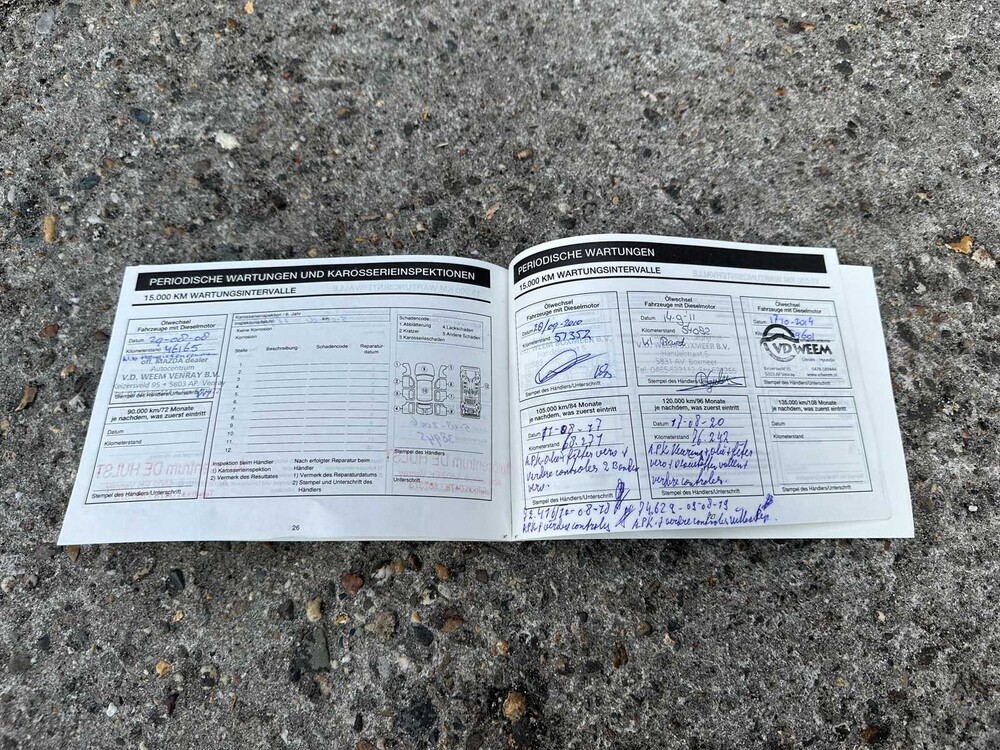 PERIODISCHE WARTUNGEN UND KAROSSERIEINSPEKTIONEN
15.000 KM WARTUNGSINTERVALLE
Ölwechsel
Fahrzeuge mit Dieselmotor
Datum 29-08-08
Kilometerstand 46165
off. MAZDA dealer
Autocentrum
V.D. WEEM VENRAY B.V.
Keizersveld 95 • 5803 AP Venray
Stempel des Händlers/Unterschrift
90.000 km/72 Monate
je nachdem, was zuerst eintritt
Datum
Kilometerstand
Stempel des Händlers/Unterschrift
Karosserieinspektion / 6. Jahr
Keine Korrosion
Korrosion
Stelle Beschreibung Schadencode: Reparatur-
datum
1.
2.
3.
4.
5.
6.
7.
8.
9.
10.
11.
12.
Inspektion beim Händler
1) Karosserieinspektion
2) Vermerk des Resultates
Nach erfolgter Reparatur beim
Händler
1) Vermerk des Reparaturdatums
2) Stempel und Unterschrift des
Händlers
Schadencode:
1 Abblätterung
2 Kratzer
3 Karosserieschäden
4 Lackschäden
5 Andere Schäden
Unterschrift
26
PERIODISCHE WARTUNGEN
15.000 KM WARTUNGSINTERVALLE
Ölwechsel
Fahrzeuge mit Dieselmotor
Datum 28/09-2010
Kilometerstand 57352
Stempel des Händlers/Unterschrift
Ölwechsel
Fahrzeuge mit Dieselmotor
Datum 14-9-11
Kilometerstand 59082
Kl. Beurt
Handelstraat 5
5831 AV Boxmeer
Stempel des Händlers
Ölwechsel
Fahrzeuge mit Dieselmotor
Datum 17-10-2014
VD WEEM
Citroën - Hyundai
5803 AP Venray www.vdweem.nl
Stempel des Händlers/Unterschrift
105.000 km/84 Monate
je nachdem, was zuerst eintritt
Datum 11-08-17
Kilometerstand 68.271
A.P.K. olie + filter vers +
verdere controles 2 Banden
vers.
Stempel des Händlers/Unterschrift
120.000 km/96 Monate
je nachdem, was zuerst eintritt
Datum 17-08-20
Kilometerstand 76.242
A.P.K. Keuring + olie + filter
verdere controles.
Stempel des Händlers/Unterschrift
135.000 km/108 Monate
je nachdem, was zuerst eintritt
Datum
Kilometerstand
Stempel des Händlers/Unterschrift
A.P.K + verdere controles
74.629 - 09-08-19
A.P.K. + verdere controles